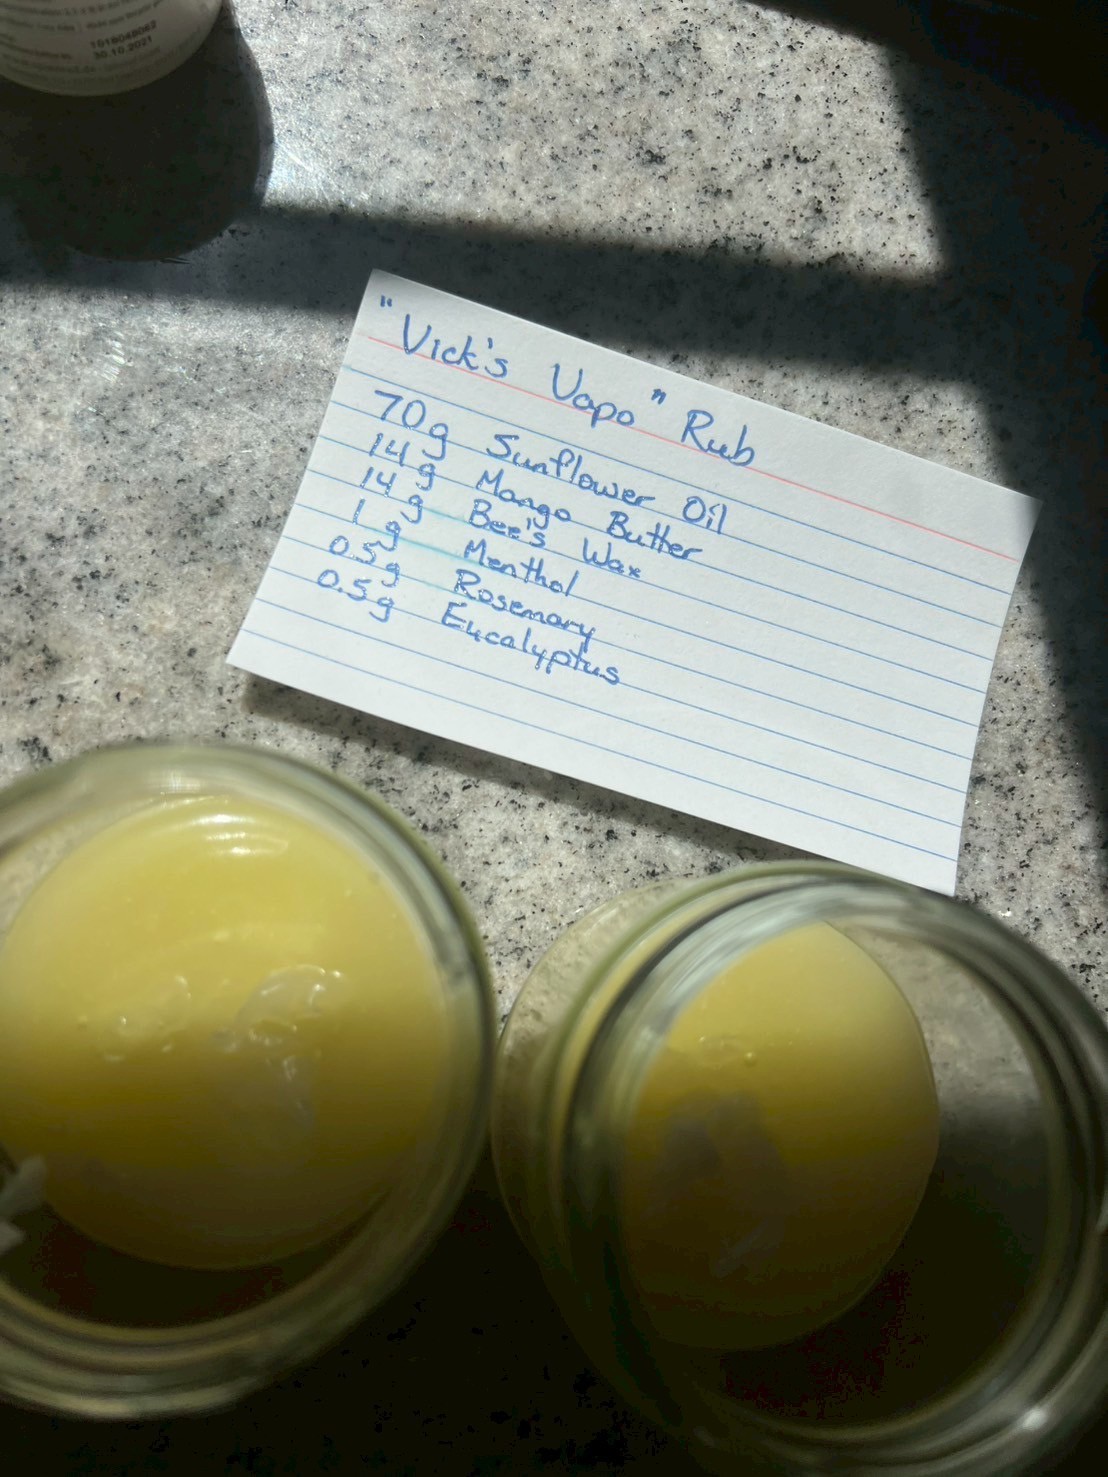 1018048062
30.10.2021
"Vick's Vapo" Rub
70g Sunflower Oil
14g Mango Butter
14g Bee's Wax
1g Menthol
0.5g Rosemary
0.5g Eucalyptus